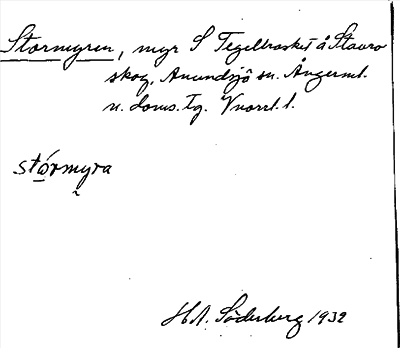 Stormyren, myr S Tegelbrasket å Stavro
skog, Anundsjö sn. Ångerml.
n. doms. Tg. Vnorrl. l.
stórmyra
H.A. Söderberg 1932